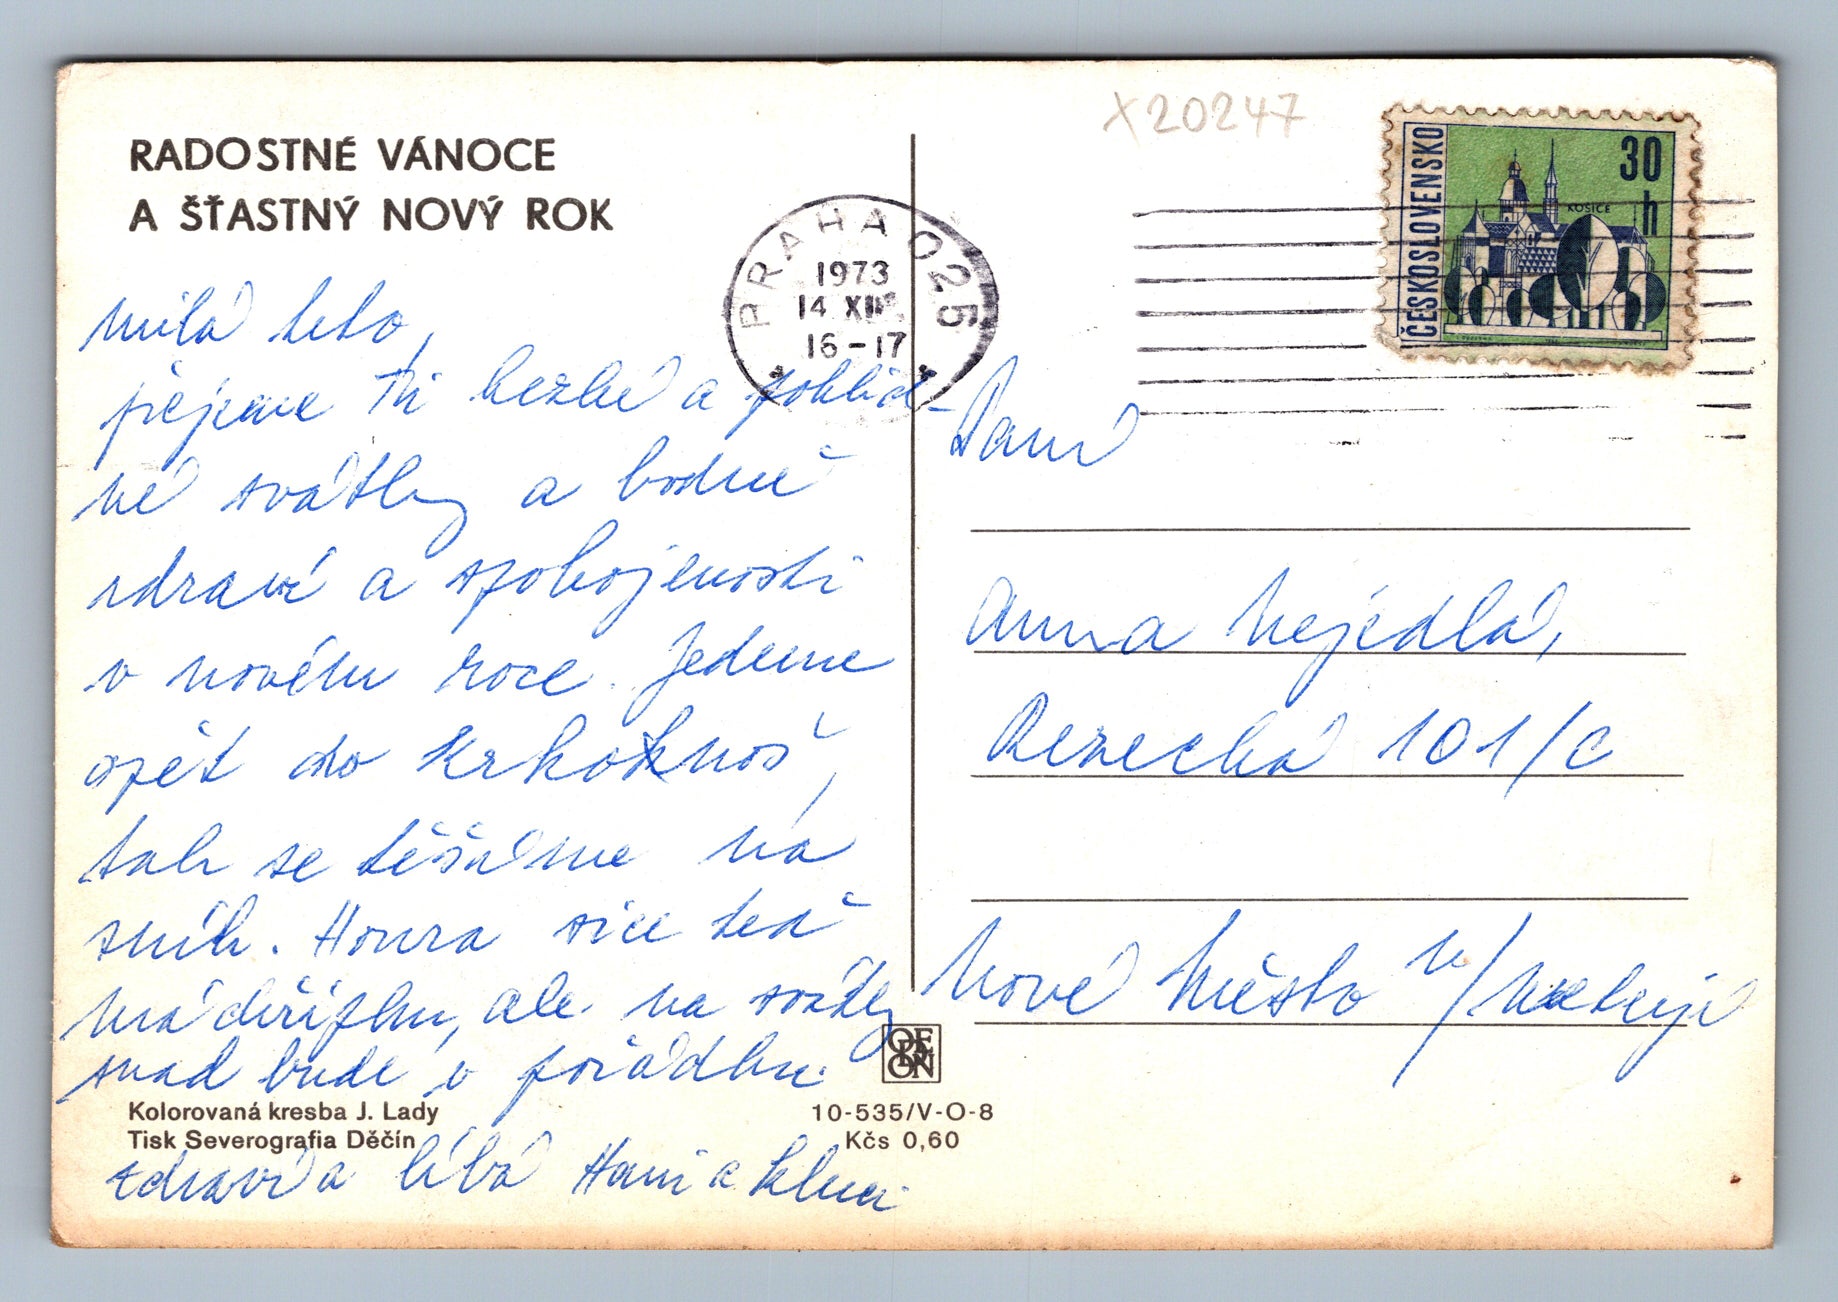 RADOSTNÉ VÁNOCE
A ŠŤASTNÝ NOVÝ ROK
Milá teto,
přejeme Ti hezké a poklid-
né svátky a hodně
zdraví a spokojenosti
v novém roce. Jedeme
opět do Krkonoš,
tak se těšíme na
sníh. Honza sice teď
má chřipku, ale na svátky
snad bude v pořádku.
Zdraví a líbá Hani a kluci
Kolorovaná kresba J. Lady
Tisk Severografia Děčín
10-535/V-O-8
Kčs 0,60
ODEON
X20247
PRAHA 025
1973
14 XII
16-17
ČESKOSLOVENSKO
30
h
KOŠICE
Paní
Anna Nejedlá,
Rezecká 101/c
Nové Město n/Metují